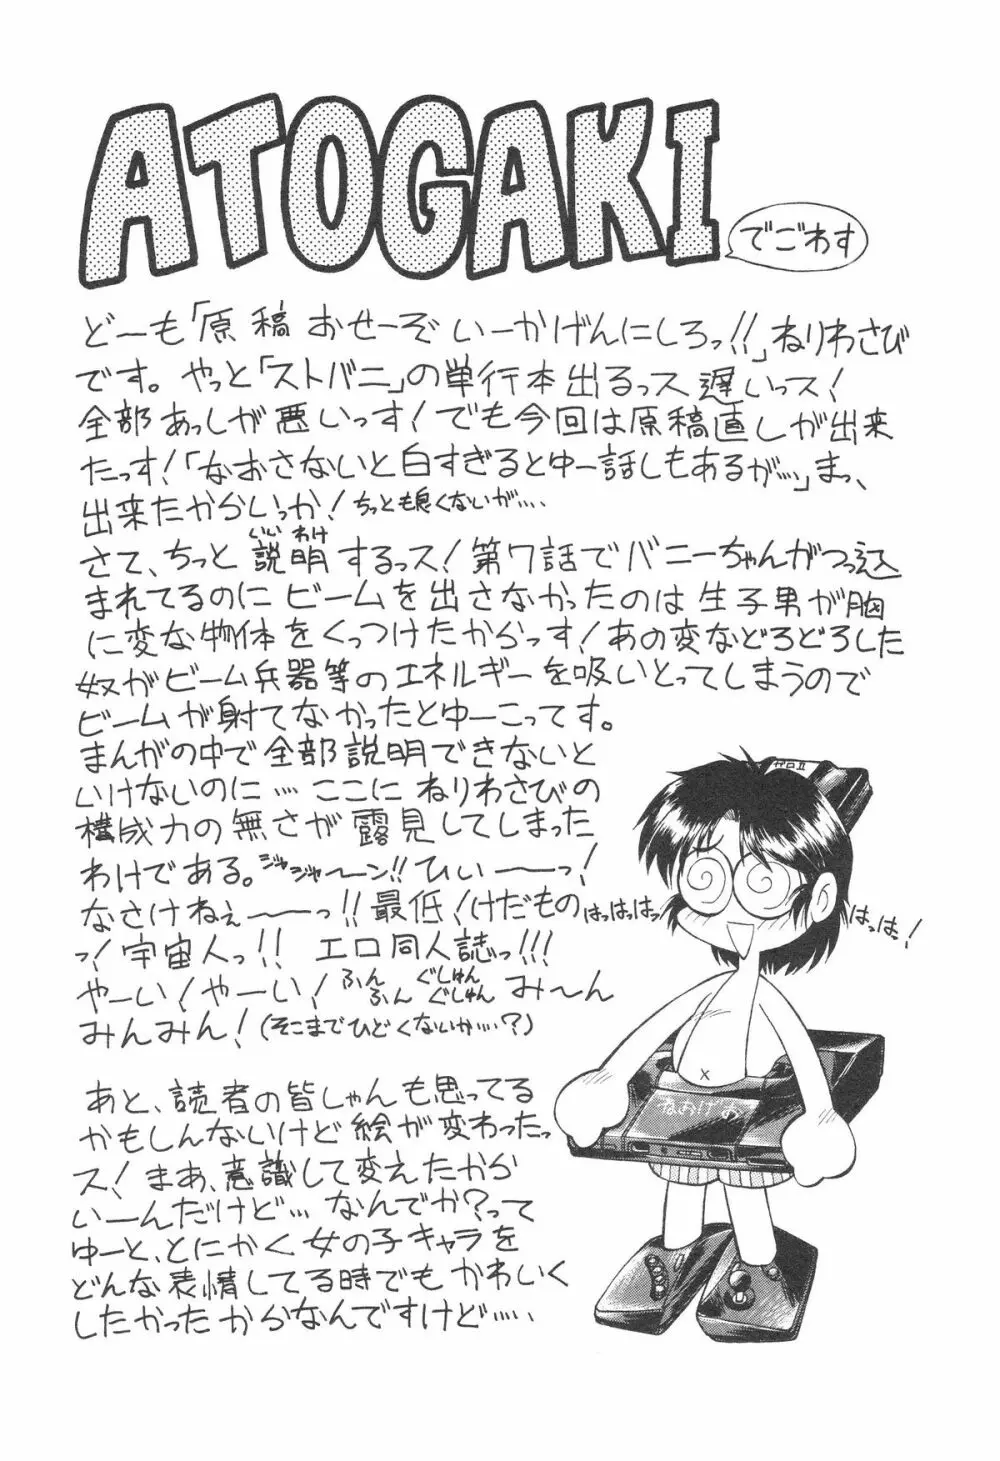 ATOGAKI
でごわす
どーも「原稿おせーぞいーかげんにしろっ!!」ねりわさび
です。やっと「ストバニ」の単行本出るっス遅いっス!
全部あっしが悪いっす!でも今回は原稿直しが出来
たっす!「なおさないと白すぎるとゆー話しもあるが…」まっ、
出来たからいっか!ちっとも良くないが….
さて、ちっと説明するっス!第7話でバニーちゃんがつっ込
いいわけ
まれてるのにビームを出さなかったのは生子男が胸
に変な物体をくっつけたからっす!あの変などろどろした
奴がビーム兵器等のエネルギーを吸いとってしまうので
ビームが射てなかったとゆーこってす。
まんがの中で全部説明できないと
いけないのに…ここにねりわさびの
構成力の無さが露見してしまった
わけである。ジャジャ〜ン!!ひぃ——っ!
なさけねぇ——っ!!最低!けだもの
っ!宇宙人っ!!エロ同人誌っ!!!
やーい!やーい!ふんふんぐしゅんぐしゅんみ〜ん
みんみん!(そこまでひどくないか….?)
はっはっはっ
はっはっ!
ゼロⅡ
ねおげお
あと、読者の皆しゃんも思ってる
かもしんないけど絵が変わったっ
ス!まあ、意識して変えたから
いーんだけど…なんでか?って
ゆーと、とにかく女の子キャラを
どんな表情してる時でもかわいく
したかったからなんですけど…..